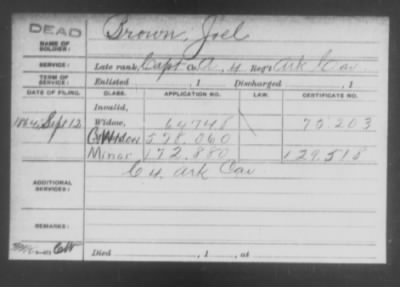 DEAD
Brown, Joel
NAME OF SOLDIER:
SERVICE:
Late rank, Capt Co. A, 4 Reg't Ark Cav
TERM OF SERVICE:
Enlisted , 1 Discharged , 1
DATE OF FILING. CLASS. APPLICATION NO. LAW. CERTIFICATE NO.
Invalid,
1864, Sept 12 Widow, 64748 75203
C Widow 578.060
Minor 172.880 129.518
ADDITIONAL SERVICES:
C 4 Ark Cav
REMARKS:
Died , 1 , at